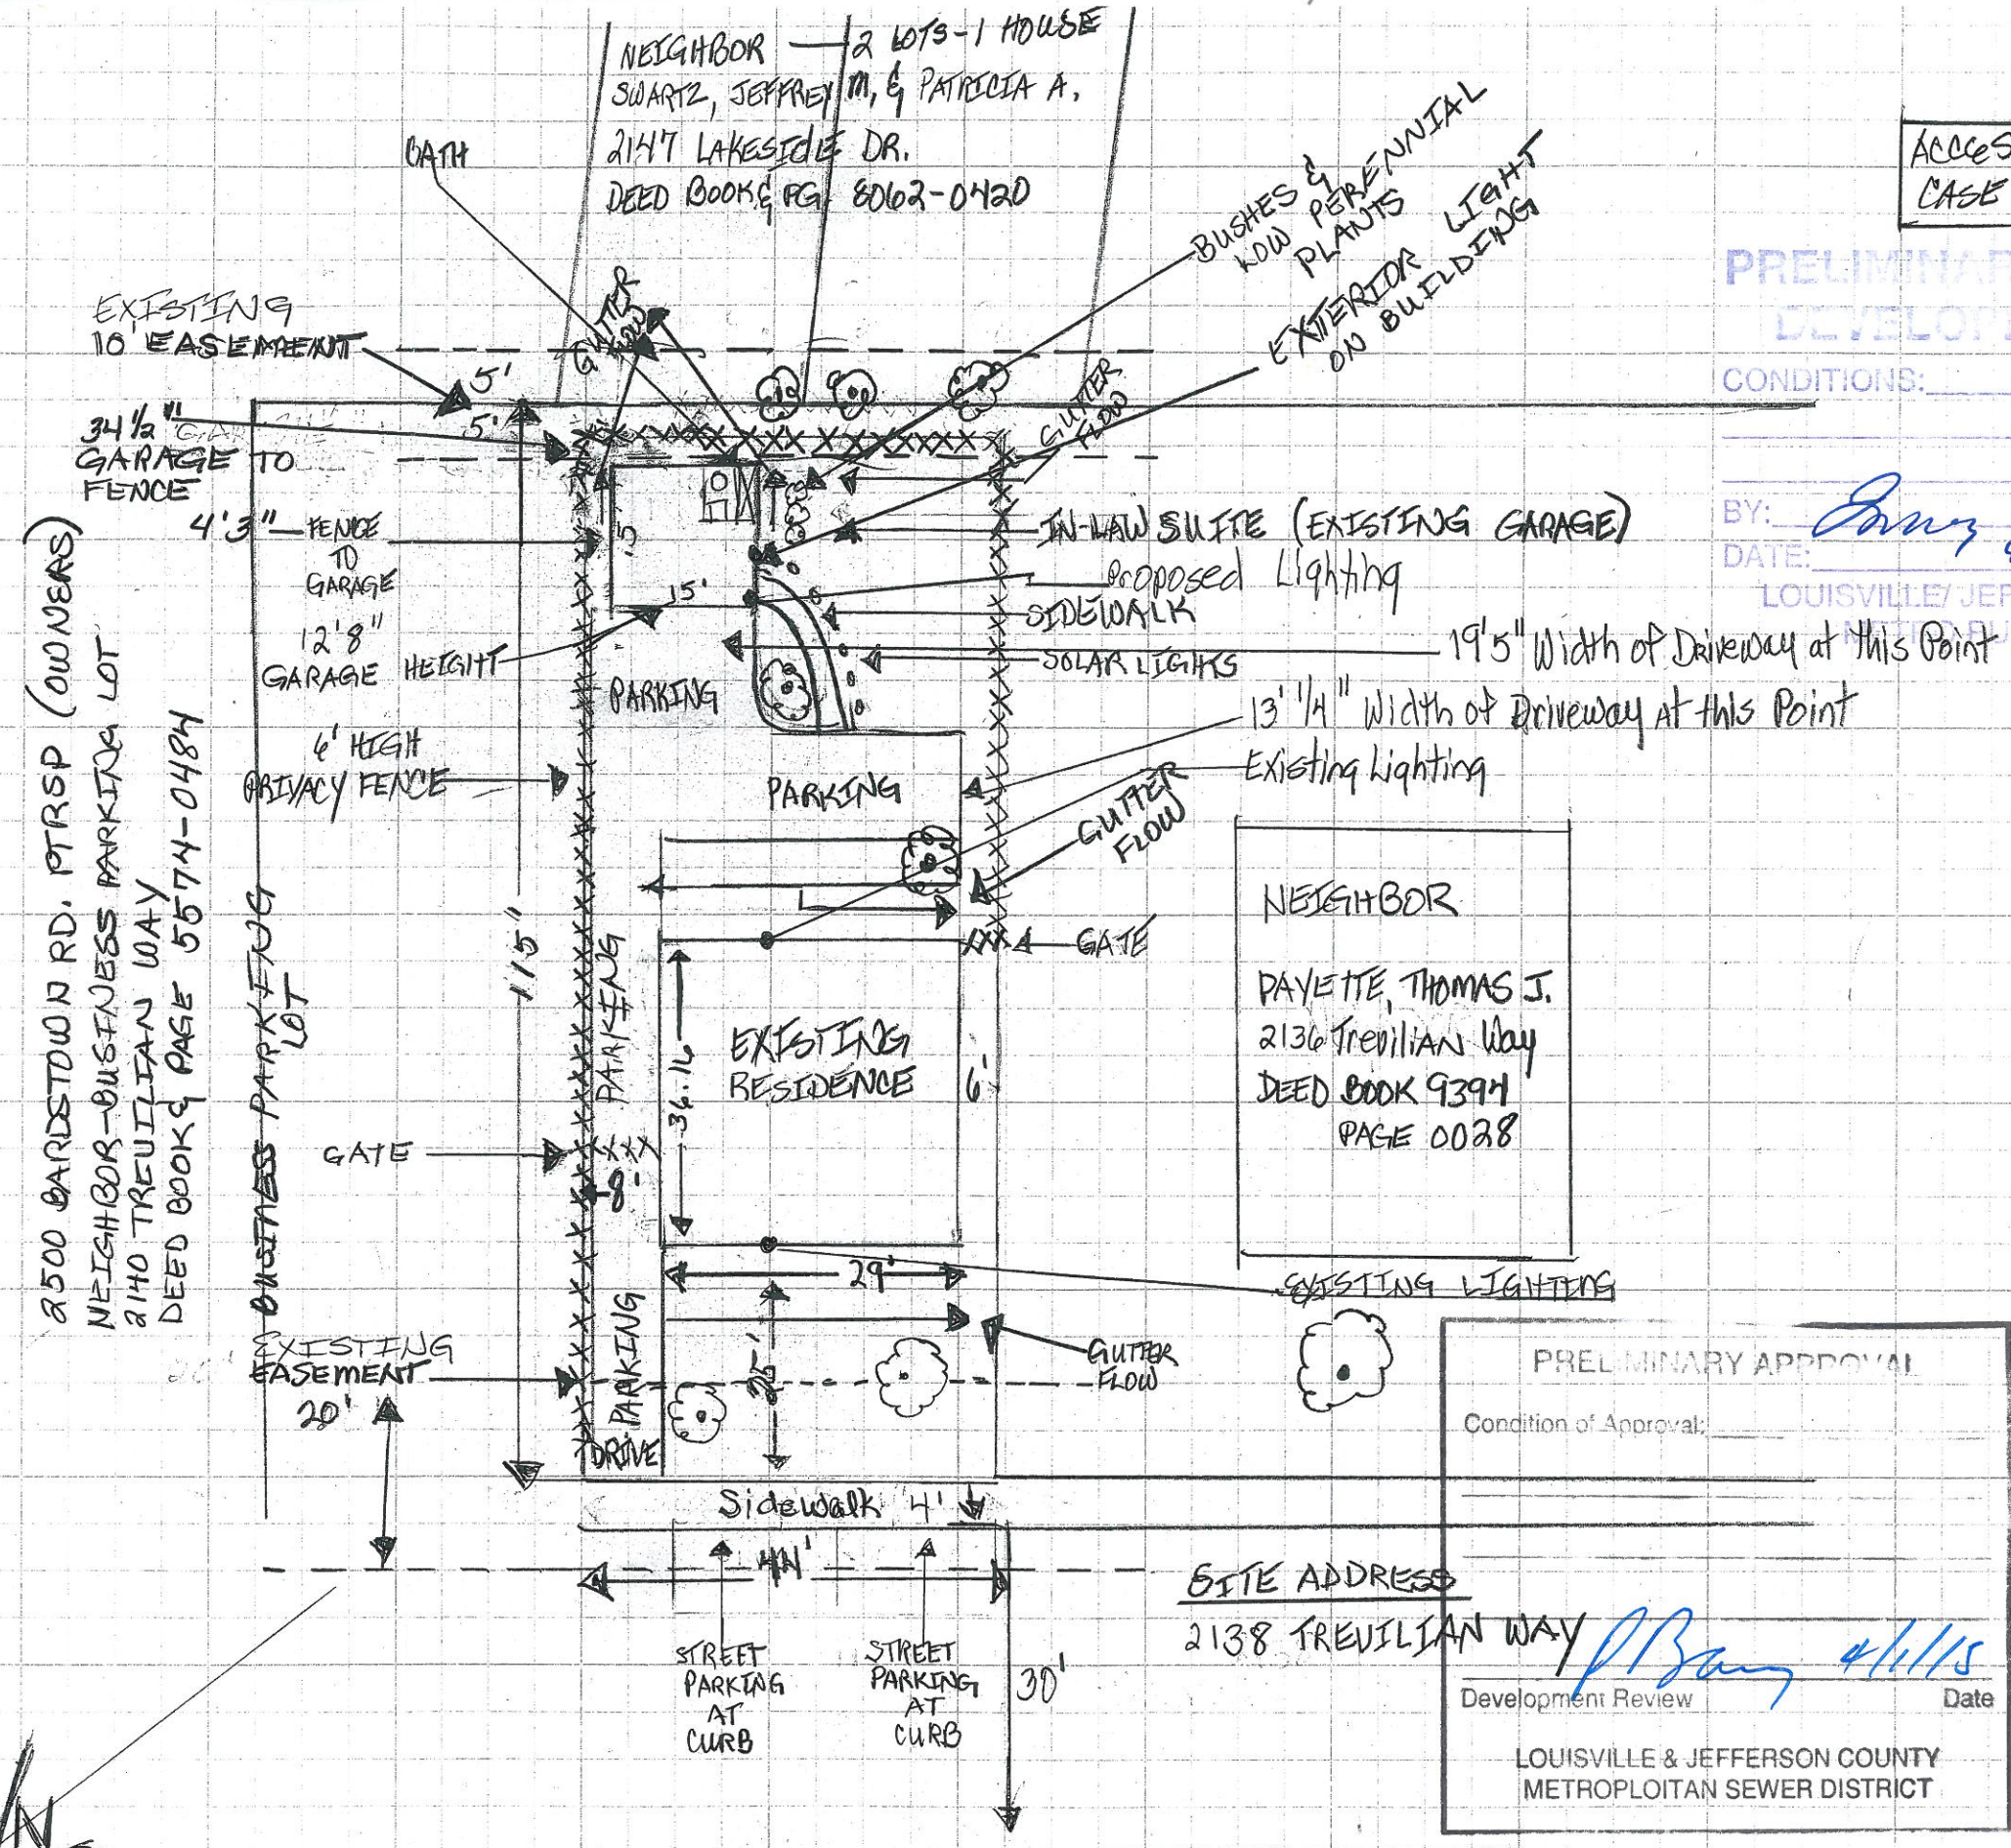 NEIGHBOR — 2 LOTS-1 HOUSE
SWARTZ, JEFFREY M, & PATRICIA A.
2147 LAKESIDE DR.
DEED BOOK & PG. 8062-0420
BATH
BUSHES &
LOW PERENNIAL
PLANTS
EXTERIOR LIGHT
ON BUILDING
ACCES
CASE
PRELIMINAR
DEVELOP
CONDITIONS:
BY:
DATE:
LOUISVILLE/ JEF
EXISTING
10' EASEMENT
5'
5'
GUTTER
FLOW
GUTTER
FLOW
34 1/2"
GARAGE TO
FENCE
4'3" — FENCE
TO
GARAGE
15'
15'
12'8"
GARAGE HEIGHT
IN-LAW SUITE (EXISTING GARAGE)
Proposed Lighting
SIDEWALK
SOLAR LIGHTS
19'5" Width of Driveway at this Point
13' 1/4" Width of Driveway At this Point
Existing Lighting
PARKING
PARKING
6' HIGH
PRIVACY FENCE
GUTTER
FLOW
GATE
2500 BARDSTOWN RD. PTRSP (OWNERS)
NEIGHBOR-BUSINESS PARKING LOT
2140 TREVILIAN WAY
DEED BOOK & PAGE 5574-0484
BUSINESS PARKING
LOT
115"
PARKING
36.16
EXISTING
RESIDENCE
6'
NEIGHBOR
PAYETTE, THOMAS J.
2136 Trevilian Way
DEED BOOK 9394
PAGE 0028
GATE
8'
29'
EXISTING LIGHTING
PARKING
25'
GUTTER
FLOW
EXISTING
EASEMENT
20'
DRIVE
Sidewalk 4'
44'
STREET
PARKING
AT
CURB
STREET
PARKING
AT
CURB
30'
SITE ADDRESS
2138 TREVILIAN WAY
PRELIMINARY APPROVAL
Condition of Approval:
4/1/15
Development Review Date
LOUISVILLE & JEFFERSON COUNTY
METROPLOITAN SEWER DISTRICT
N